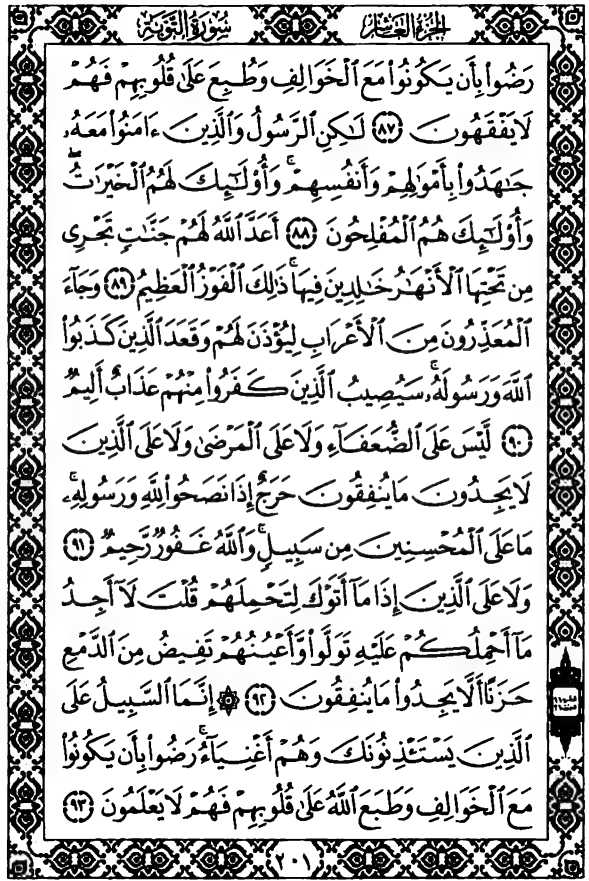 الجزء العاشر سورة التوبة
رَضُوا۟ بِأَن يَكُونُوا۟ مَعَ ٱلْخَوَالِفِ وَطُبِعَ عَلَىٰ قُلُوبِهِمْ فَهُمْ
لَا يَفْقَهُونَ ﴿٨٧﴾ لَٰكِنِ ٱلرَّسُولُ وَٱلَّذِينَ ءَامَنُوا۟ مَعَهُۥ
جَٰهَدُوا۟ بِأَمْوَٰلِهِمْ وَأَنفُسِهِمْ ۚ وَأُو۟لَٰٓئِكَ لَهُمُ ٱلْخَيْرَٰتُ ۖ
وَأُو۟لَٰٓئِكَ هُمُ ٱلْمُفْلِحُونَ ﴿٨٨﴾ أَعَدَّ ٱللَّهُ لَهُمْ جَنَّٰتٍ تَجْرِى
مِن تَحْتِهَا ٱلْأَنْهَٰرُ خَٰلِدِينَ فِيهَا ۚ ذَٰلِكَ ٱلْفَوْزُ ٱلْعَظِيمُ ﴿٨٩﴾ وَجَآءَ
ٱلْمُعَذِّرُونَ مِنَ ٱلْأَعْرَابِ لِيُؤْذَنَ لَهُمْ وَقَعَدَ ٱلَّذِينَ كَذَبُوا۟
ٱللَّهَ وَرَسُولَهُۥ ۚ سَيُصِيبُ ٱلَّذِينَ كَفَرُوا۟ مِنْهُمْ عَذَابٌ أَلِيمٌ
﴿٩٠﴾ لَّيْسَ عَلَى ٱلضُّعَفَآءِ وَلَا عَلَى ٱلْمَرْضَىٰ وَلَا عَلَى ٱلَّذِينَ
لَا يَجِدُونَ مَا يُنفِقُونَ حَرَجٌ إِذَا نَصَحُوا۟ لِلَّهِ وَرَسُولِهِۦ ۚ
مَا عَلَى ٱلْمُحْسِنِينَ مِن سَبِيلٍ ۚ وَٱللَّهُ غَفُورٌ رَّحِيمٌ ﴿٩١﴾
وَلَا عَلَى ٱلَّذِينَ إِذَا مَآ أَتَوْكَ لِتَحْمِلَهُمْ قُلْتَ لَآ أَجِدُ
مَآ أَحْمِلُكُمْ عَلَيْهِ تَوَلَّوا۟ وَّأَعْيُنُهُمْ تَفِيضُ مِنَ ٱلدَّمْعِ
حَزَنًا أَلَّا يَجِدُوا۟ مَا يُنفِقُونَ ﴿٩٢﴾ ۞ إِنَّمَا ٱلسَّبِيلُ عَلَى
ٱلَّذِينَ يَسْتَـْٔذِنُونَكَ وَهُمْ أَغْنِيَآءُ ۚ رَضُوا۟ بِأَن يَكُونُوا۟
مَعَ ٱلْخَوَالِفِ وَطَبَعَ ٱللَّهُ عَلَىٰ قُلُوبِهِمْ فَهُمْ لَا يَعْلَمُونَ ﴿٩٣﴾
٢٠١